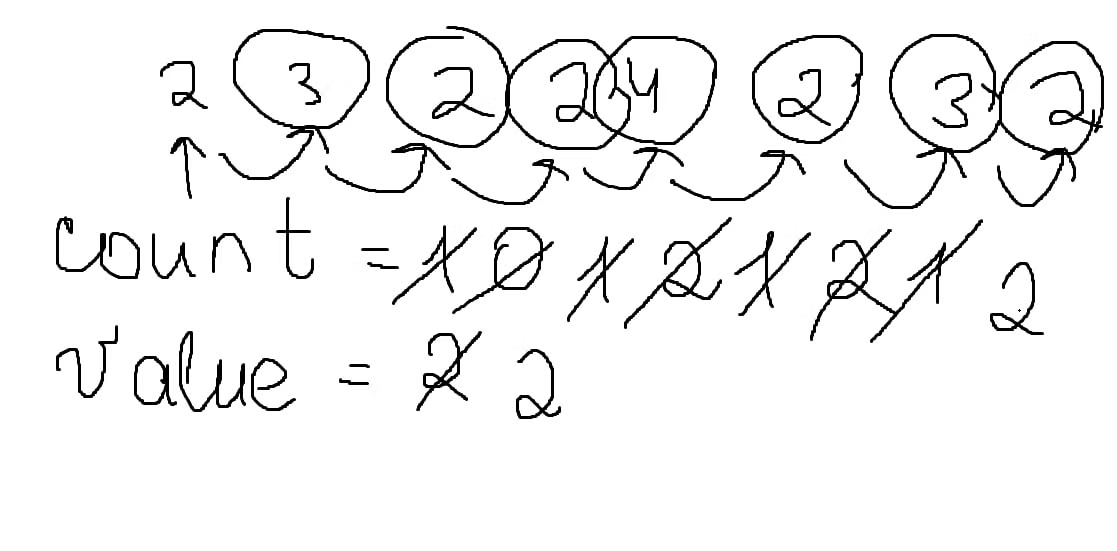 2 3 2 2 4 2 3 2
count = 1 0 1 2 1 2 1 2
value = 2 2